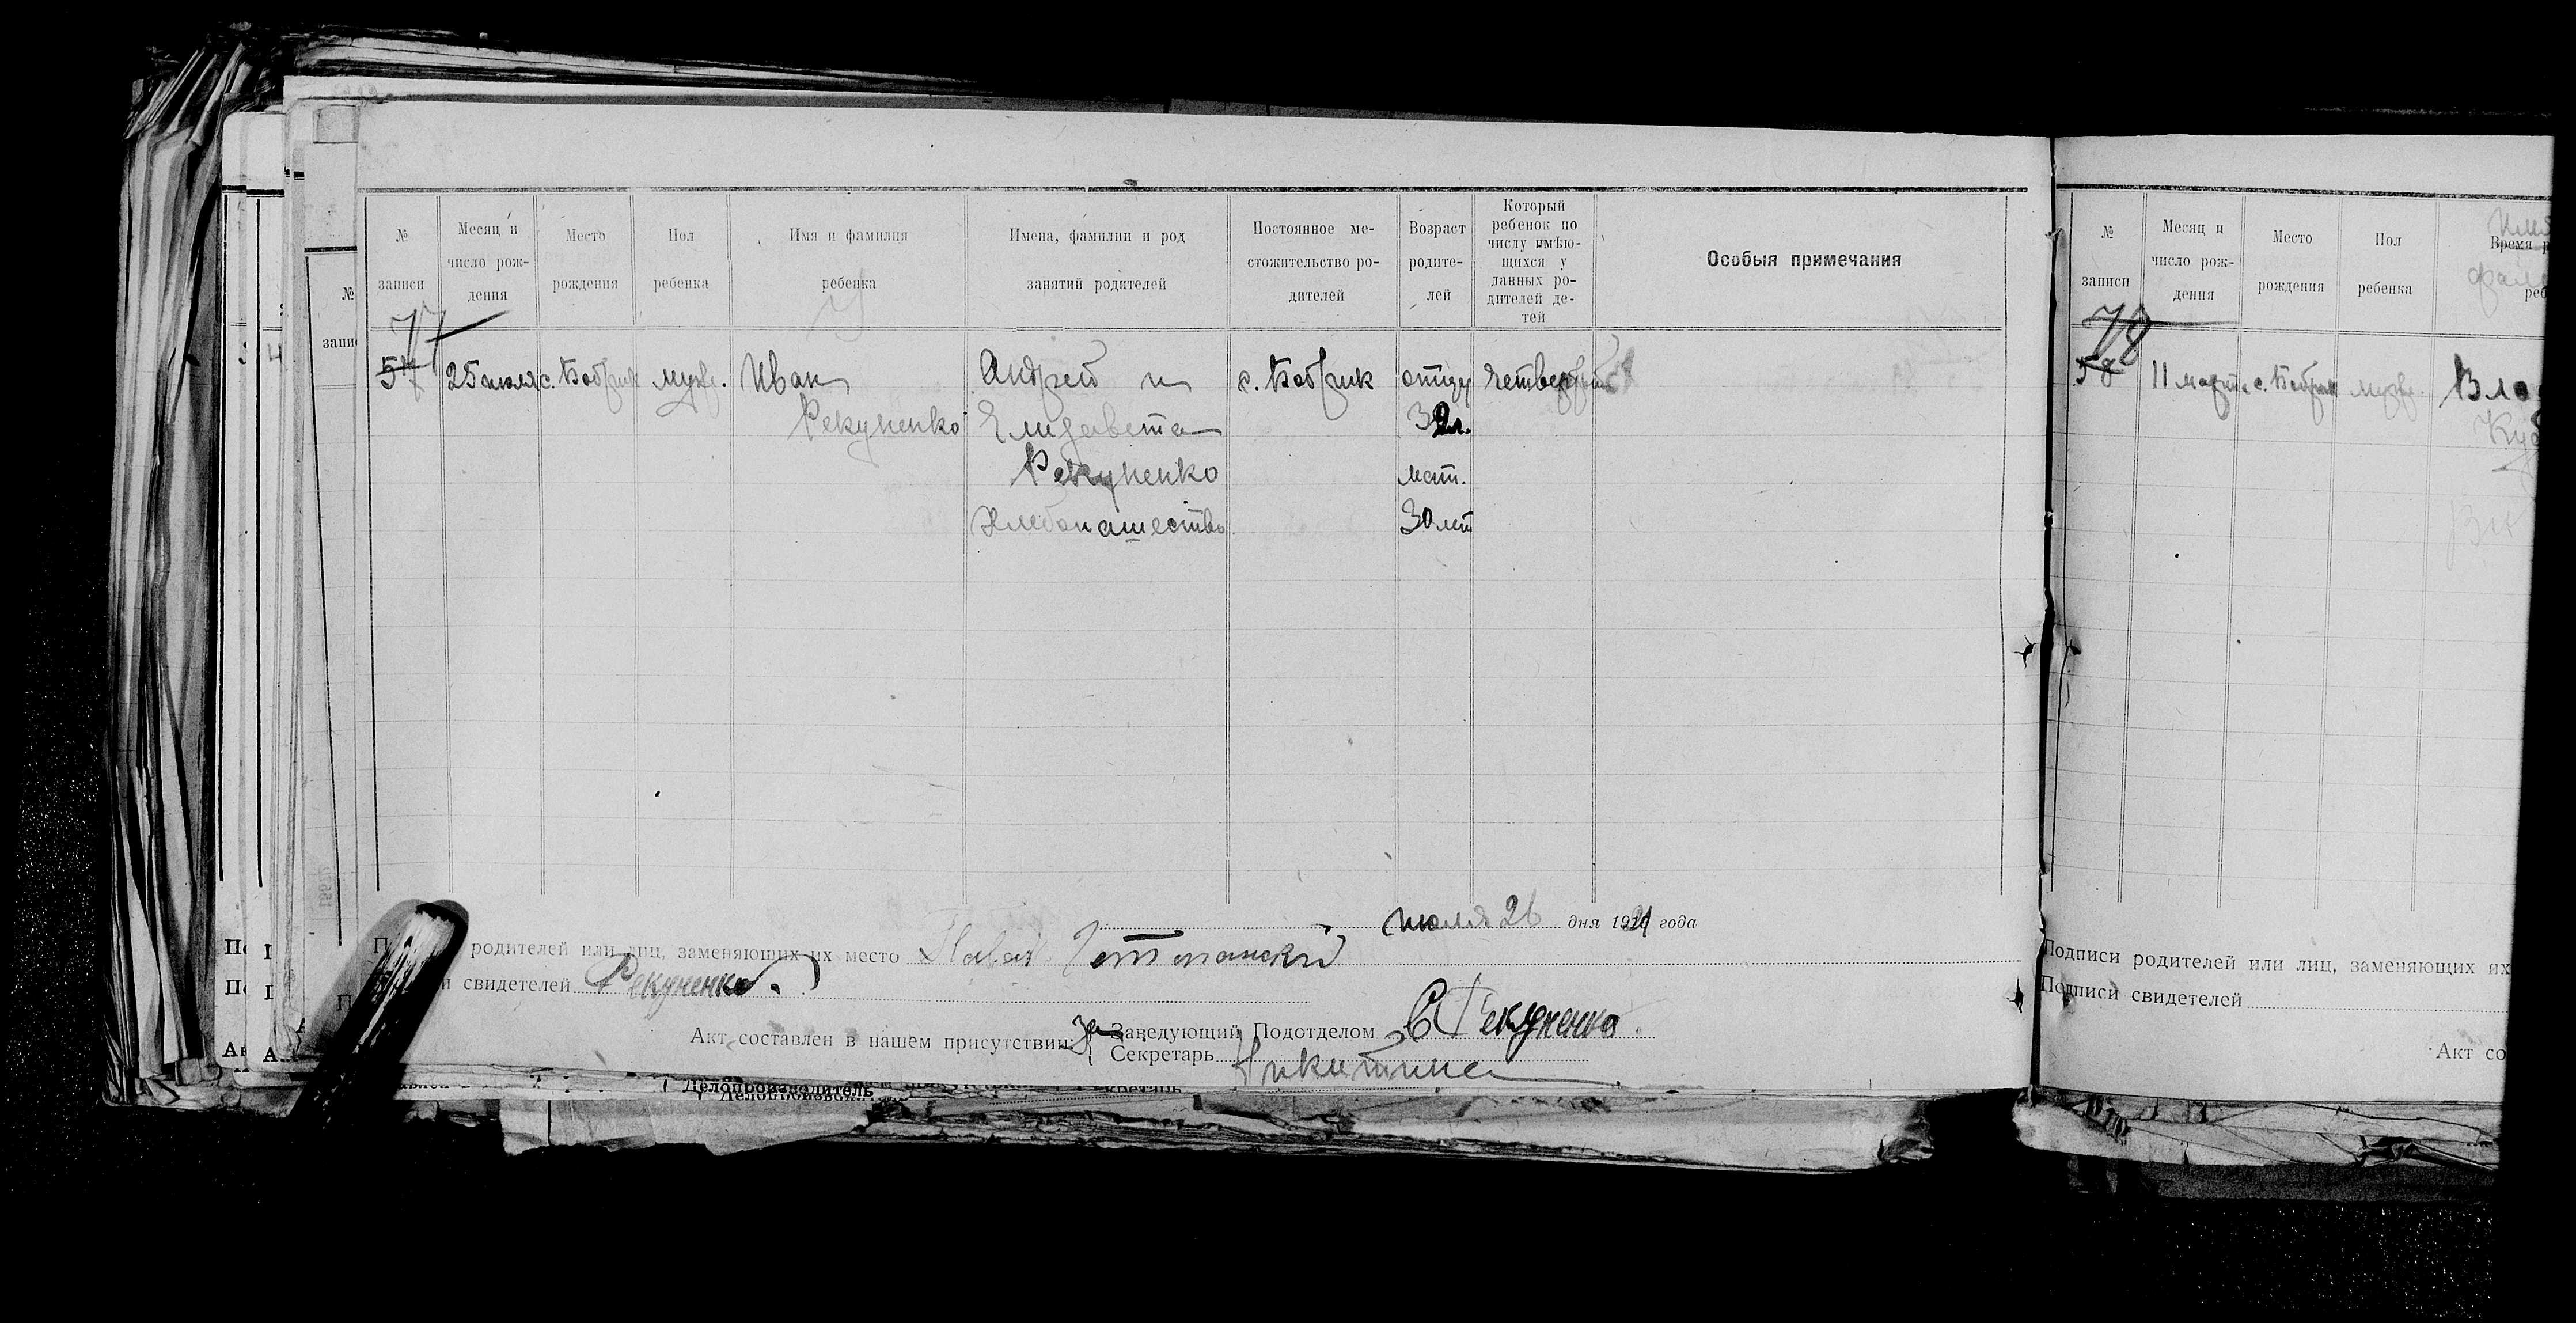 № записи
Месяц и число рож-дения
Место рождения
Пол ребенка
Имя и фамилия ребенка
Имена, фамилии и род занятий родителей
Постоянное ме-стожительство ро-дителей
Возраст родите-лей
Который ребенок по числу имѣю-щихся у данных ро-дителей де-тей
Особыя примечания
77
57 25 июля с. Бобрик мужс. Иван Андрей и с. Бобрик отцу четвертый
Рекуненко Елизавета 32 л.
Рекуненко мат.
Хлебопашество 30 лет
июля 26 дня 1921 года
родителей или лиц, заменяющих их место Павел
и свидетелей Рекуненко.
Акт составлен в нашем присутствии:
Заведующий Подотделом С Рекуненко.
Секретарь Никитина
Делопроизводитель
№ записи
Месяц и число рож-дения
Место рождения
Пол ребенка
Время р
78
58 11 марта с. Бобрик мужс. Влад
Подписи родителей или лиц, заменяющих их
Подписи свидетелей
Акт со